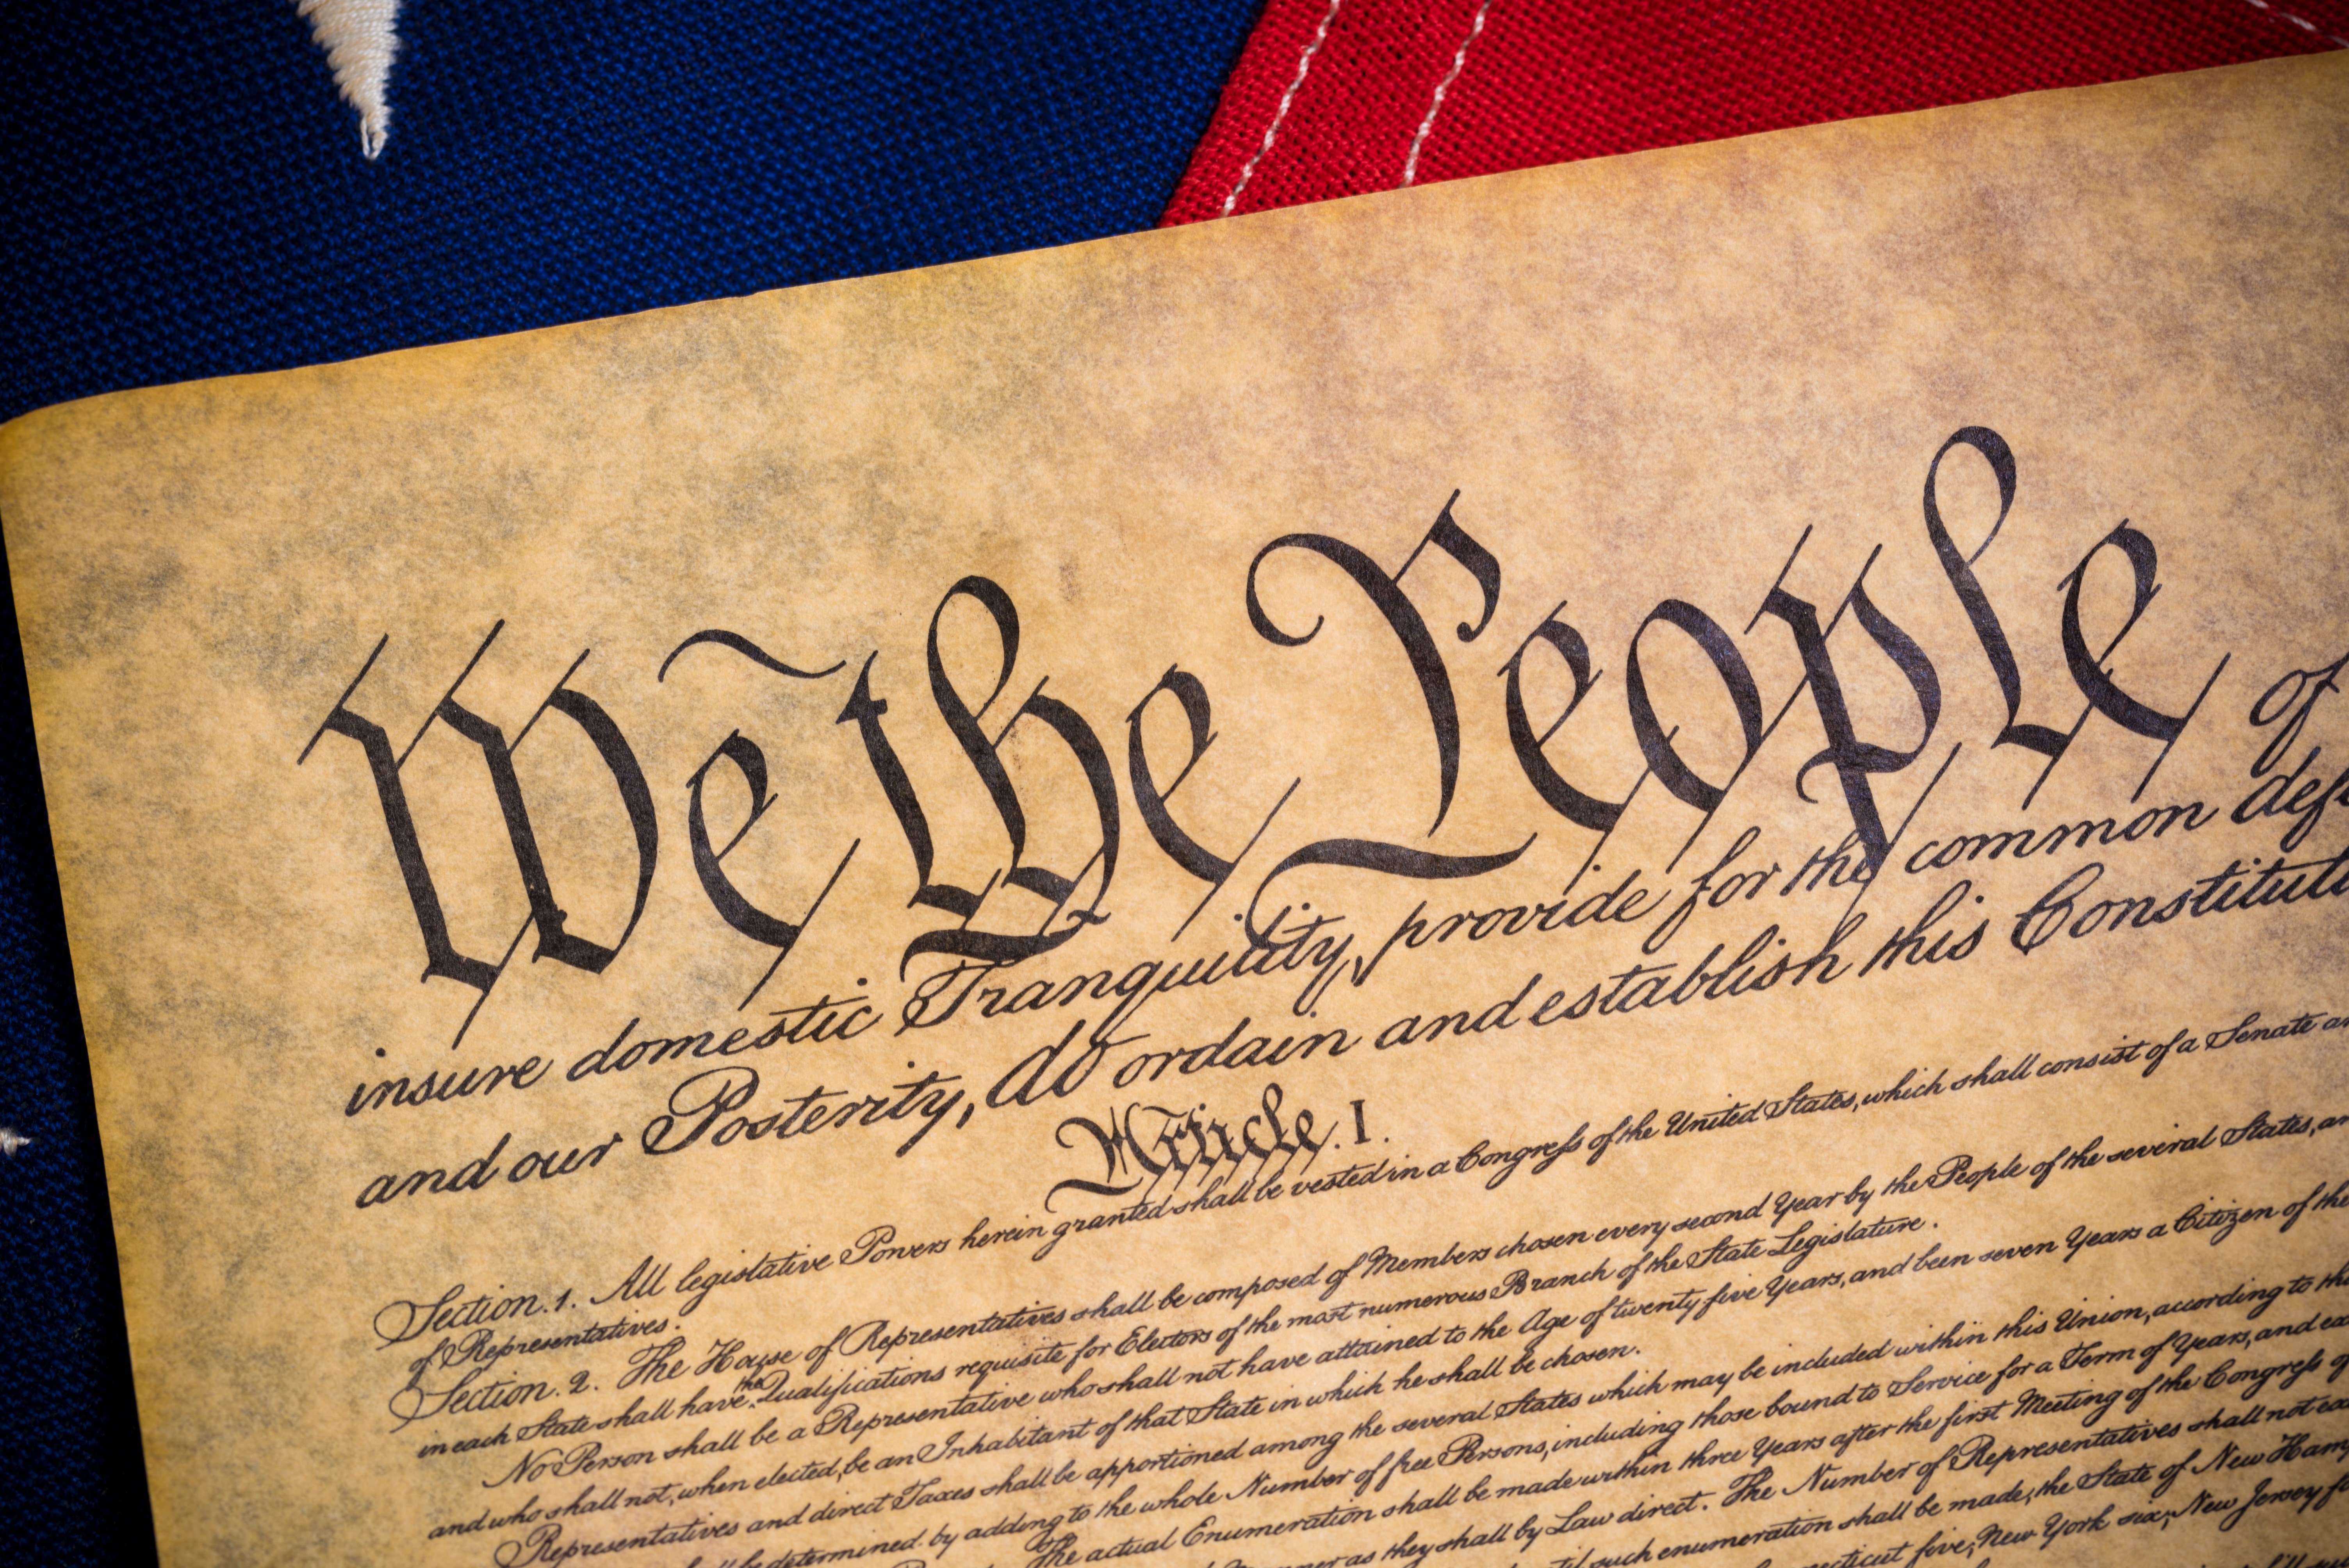 We the People of
insure domestic Tranquility, provide for the common def
and our Posterity, do ordain and establish this Constituti
Article. I.
Section. 1. All legislative Powers herein granted shall be vested in a Congress of the United States, which shall consist of a Senate an
of Representatives.
Section. 2. The House of Representatives shall be composed of Members chosen every second Year by the People of the several States, an
in each State shall have the Qualifications requisite for Electors of the most numerous Branch of the State Legislature.
No Person shall be a Representative who shall not have attained to the Age of twenty five Years, and been seven Years a Citizen of the
and who shall not, when elected, be an Inhabitant of that State in which he shall be chosen.
Representatives and direct Taxes shall be apportioned among the several States which may be included within this Union, according to the
determined by adding to the whole Number of free Persons, including those bound to Service for a Term of Years, and ex
The actual Enumeration shall be made within three Years after the first Meeting of the Congress of
as they shall by Law direct. The Number of Representatives shall not ex
such enumeration shall be made, the State of New Ham
five, New York six, New Jersey f